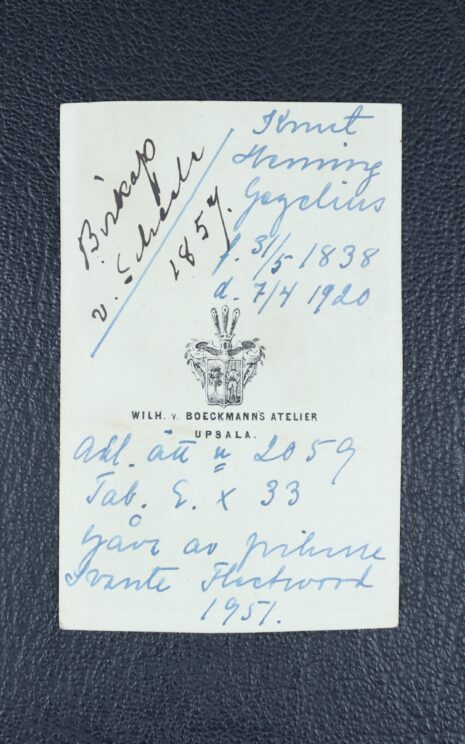 Biskop
v. Schéele
1857.
Knut
Henning
Gezelius
f. 31/5 1838
d. 7/4 1920
WILH. v. BOECKMANN'S ATELIER
UPSALA.
Adl. ätt n 2059
Tab. E. x 33
Gåva av friherre
Svante Fleetwood
1951.